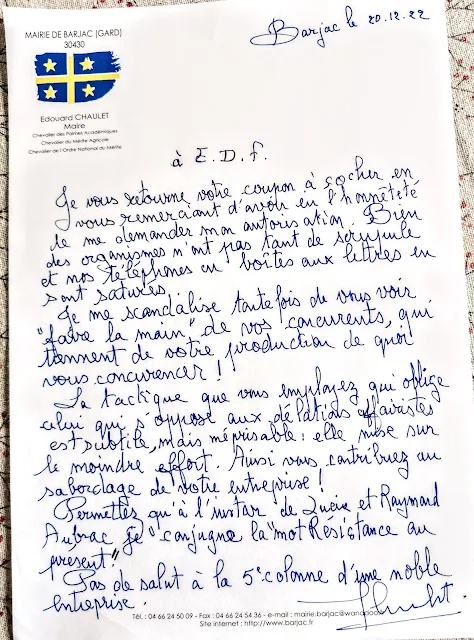 MAIRIE DE BARJAC (GARD)
30430
Edouard CHAULET
Maire
Chevalier des Palmes Académiques
Chevalier du Mérite Agricole
Chevalier de l'Ordre National du Mérite
Barjac le 20.12.22
à E.D.F.
Je vous retourne votre coupon à cocher en
vous remerciant d'avoir eu l'honnêteté
de me demander mon autorisation. Bien
des organismes n'ont pas tant de scrupule
et nos téléphones ou boîtes aux lettres en
sont saturés.
Je me scandalise toutefois de vous voir
"faire la main" de vos concurents, qui
tiennent de votre production de quoi
vous concurencer !
La tactique que vous employez qui oblige
celui qui s'oppose aux délations affairistes
est subtile, mais méprisable : elle mise sur
le moindre effort. Ainsi vous contribuez au
sabordage de votre entreprise !
Permettez qu'à l'instar de Lucie et Raymond
Aubrac je "conjugue le mot Résistance au
présent".
Pas de salut à la 5e colonne d'une noble
entreprise.
Tél. : 04 66 24 50 09 - Fax : 04 66 24 54 36 - e-mail : mairie.barjac@wanadoo
Site internet : http://www.barjac.fr